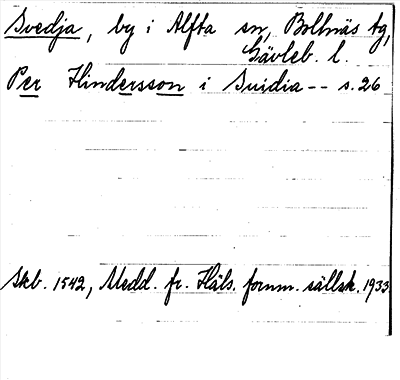 Svedja, by i Alfta sn, Bollnäs tg,
Gävleb. l.
Per Hindersson i Suidia -- s. 26
Skb. 1542, Medd. fr. Häls. fornm. sällsk. 1933